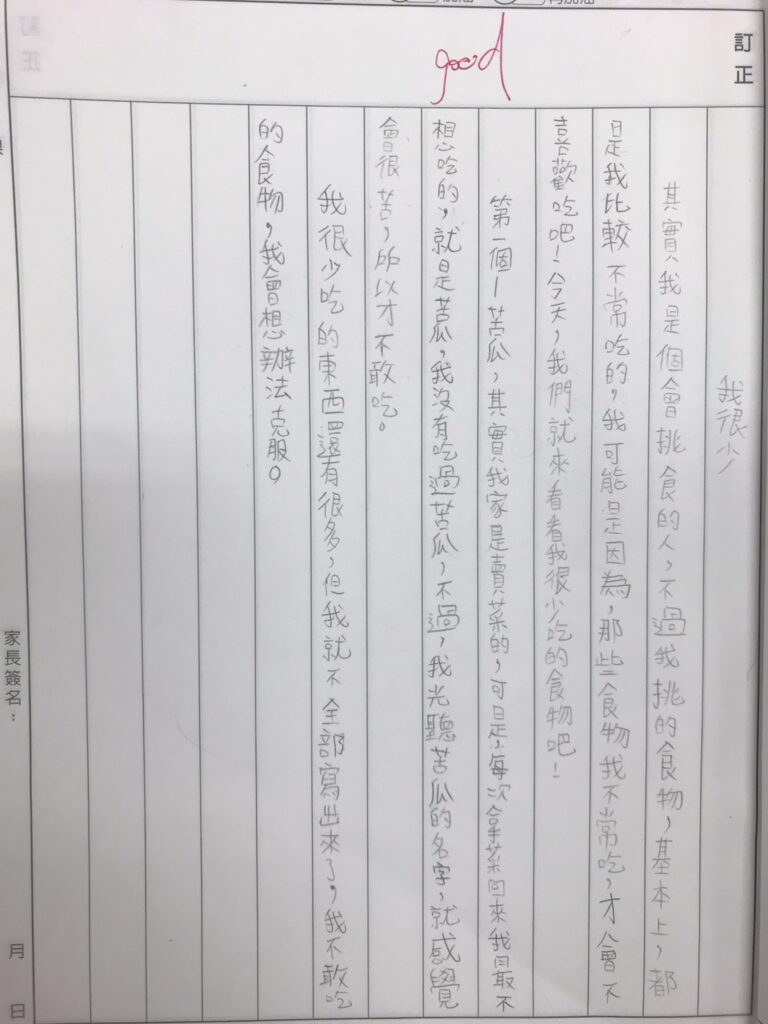 訂正
good
我很少
其實我是個會挑食的人，不過我挑的食物，基本上，都
是我比較不常吃的，我可能是因為，那些食物我不常吃，才會不
喜歡吃吧！今天，我們就來看看我很少吃的食物吧！
第一個－苦瓜，其實我家是賣菜的，可是，每次拿菜回來我最不
想吃的，就是苦瓜，我沒有吃過苦瓜，不過，我光聽苦瓜的名字，就感覺
會很苦，所以才不敢吃。
我很少吃的東西還有很多，但我就不全部寫出來了，我不敢吃
的食物，我會想辦法克服。
家長簽名：
月
日